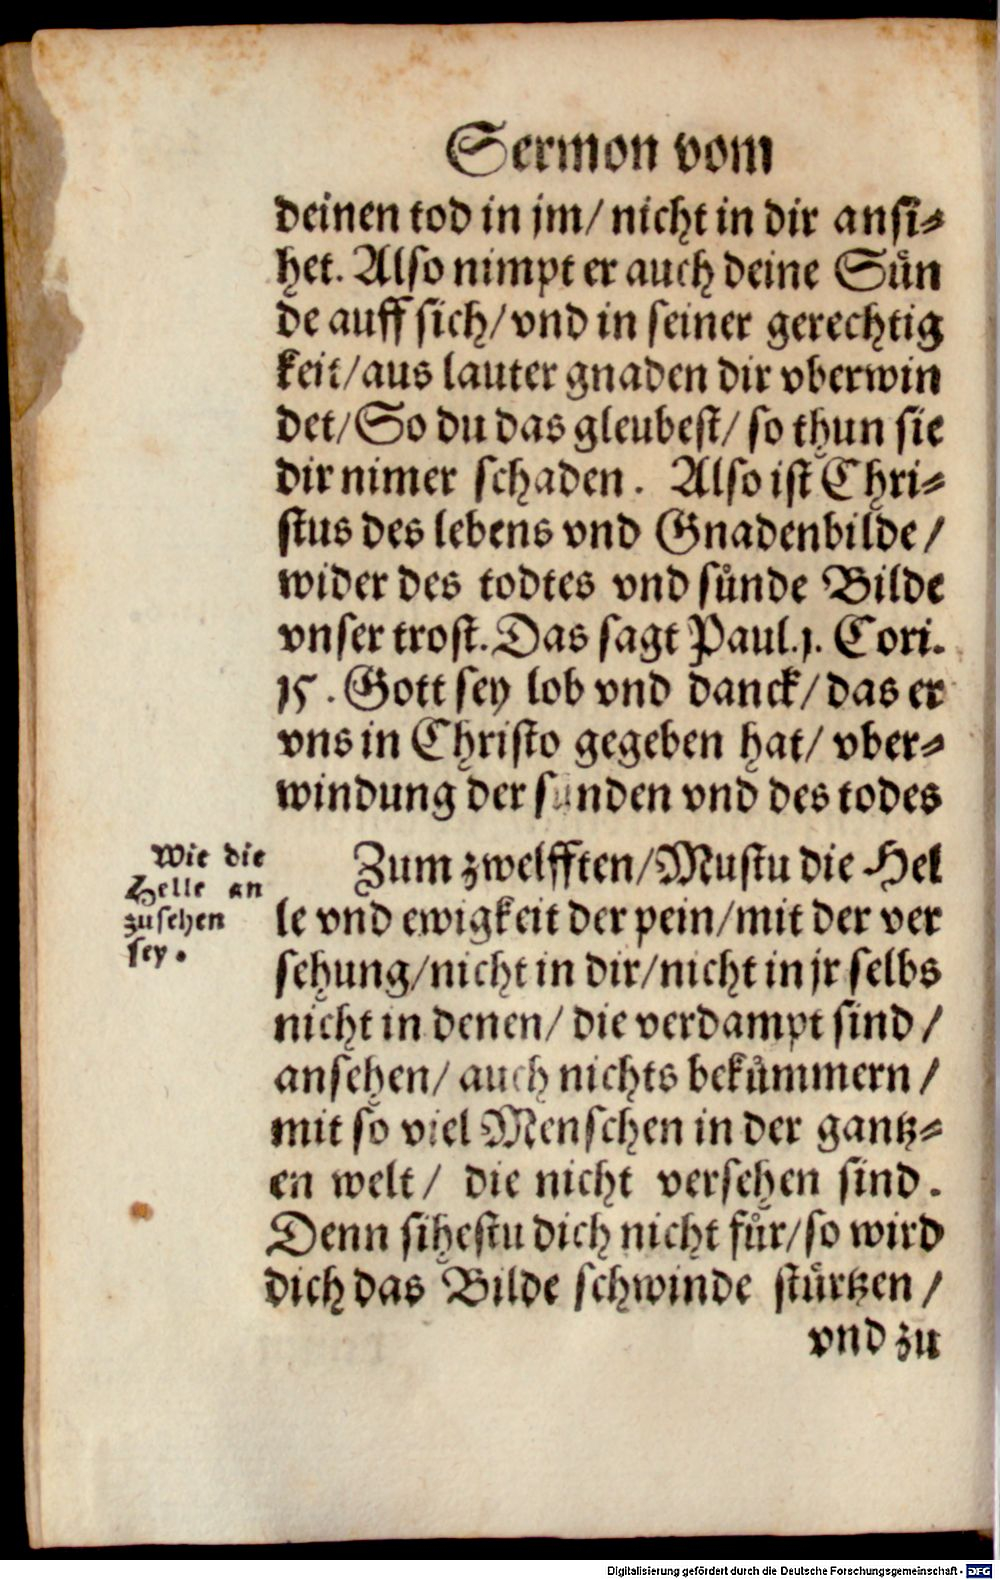 Sermon vom
deinen tod in jm/ nicht in dir ansi⸗
het. Also nimpt er auch deine Suͤn
de auff sich/ vnd in seiner gerechtig
keit/ aus lauter gnaden dir vberwin
det/ So du das gleubest/ so thun sie
dir nimer schaden. Also ist Chri⸗
stus des lebens vnd Gnadenbilde/
wider des todtes vnd suͤnde Bilde
vnser trost. Das sagt Paul. 1. Cori.
15. Gott sey lob vnd danck/ das er
vns in Christo gegeben hat/ vber⸗
windung der sunden vnd des todes
Wie die
Helle an
zusehen
sey.
Zum zwelfften/ Mustu die Hel
le vnd ewigkeit der pein/ mit der ver
sehung/ nicht in dir/ nicht in jr selbs
nicht in denen/ die verdampt sind/
ansehen/ auch nichts bekuͤmmern/
mit so viel Menschen in der gantz⸗
en welt/ die nicht versehen sind.
Denn sihestu dich nicht fuͤr/ so wird
dich das Bilde schwinde stuͤrtzen/
vnd zu
Digitalisierung gefördert durch die Deutsche Forschungsgemeinschaft - DFG